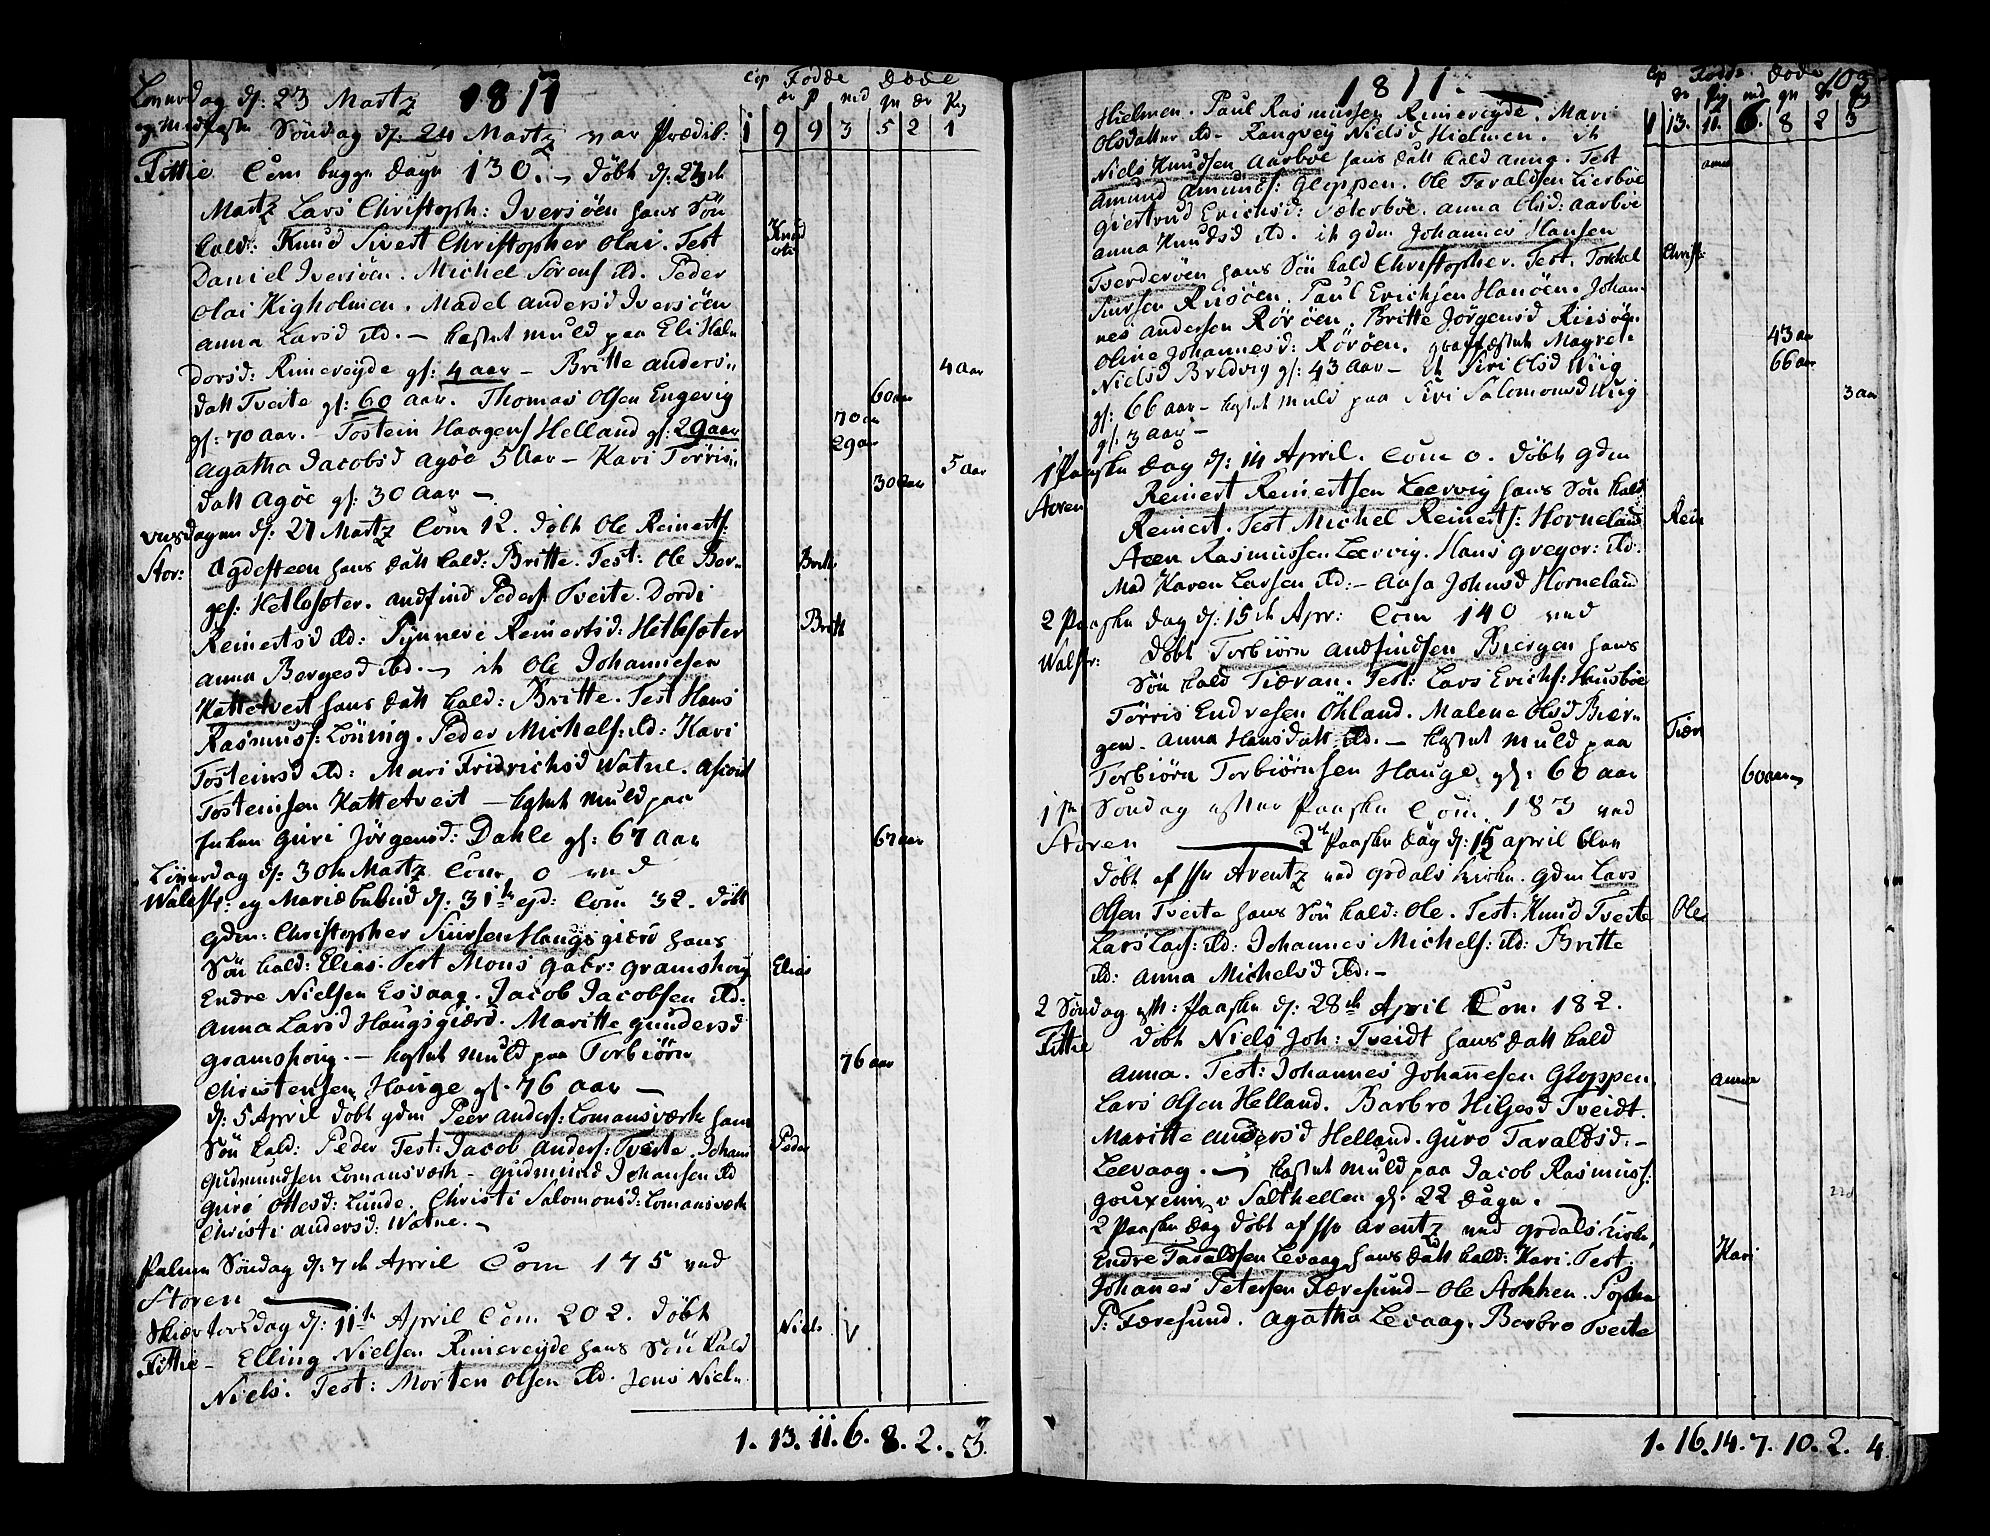 1811
Cop Födde Döde
Dr P md qu Dr Pig
1 9 9 3 5 2 1
Löuerdag d: 23 Martz
Söndag d: 24 Martz var Prædik:
Fittie Com begge Dage 130. – Döbt d: 24de
Martz Lars Christoph: Iversöen hans Sön
kald: Knud Sivert Christopher Olai. Test
Daniel Iversöen. Michel Sörens ibd. Peder
Olai Kigholmen. Madel Andersd Iversöen
Anna Larsd ibd. – kastet muld paa Eli Hal-
dorsd: Rimereyde gl: 4 aar – Britte Anders-
4 aar
datt Tveite gl: 60 aar. Thomas Olsen Engevig
60 aar
70 aar
gl: 70 aar. – Tostein Haagens Helland gl: 29 aar
29 aar
Agatha Jacobsd Agöe 5 Aar – Kari Törris-
5 aar
datt Agöe gl: 30 Aar –
30 aar
Onsdagen d: 27 Martz Com 12. Döbt Ole Reinerts:
Stor: Agdesteen hans Datt kald: Britte. Test: Ole Bor-
Britt
ges: Hetlesæter. Andfind Peders Tveite. Dordi
Reinertsd ibd: Synneve Reinertsd: Hetlesæter
Britt
Anna Bergesd ibd. – it Ole Johannesen
Kattetveit hans Datt kald: Britte. Test Hans
Rasmuss: Lönnig. Peder Michels: ibd: Kari
Tosteinsd ibd: Mari Fridrichsd Watne. Asiørd
Tosteinsen Kattetveit – kastet muld paa
Enken Guri Jörgensd: Dahle gl: 67 aar
67 aar
Löuerdag d: 30te Martz Com 0 ved
Walestr: og Mariæ bebud d: 31te ejd: Com 32. Döbt
gdm: Christopher Siursen Haugsgierd hans
Sön kald: Elias. Test Mons Gabr: Gramshoug
Elias
Endre Nielsen Esvaag. Jacob Jacobsen ibd:
Anna Larsd Haugsgierd. Maritte Gundersd
Gramshoug. – kastet muld paa Torbiörn
Christensen Hauge gl. 76 aar –
76 aar
d: 5 April döbt gdm Peer Anders: Lomansværk hans
Sön kald: Peder Test: Jacob Anders: Tveite. Johans
Peder
Gudmundsen Lomansværk – Gudmund Johansen ibd
Guri Ottesd: Lunde. Christi Salomonsd: Lomansværk
Christi Andersd: Watne. –
Palme Söndag d: 7de April Com 175 ved
Storen
Skiertorsdag d: 11te April Com. 202. Döbt
Fittie – Elling Nielsen Rimereyde hans Sön kald
Niels
Niels. Test: Morten Olsen ibd. Jens Niels-
1. 13. 11. 6. 8. 2. 3.
1811.
103
Cop Födde Döde
1 13. 11. 6. 8 2 3
Hielmen. Paul Rasmussen Rimereyde. Mari
Olsdatter ibd – Rangvey Nielsd Hielmen. it
Niels Knudsen Aarboe hans Datt kald Anna. Test
Anna
Amund Amunds: Gloppen. Ole Taraldsen Lierböe
Giertrud Erichsd: Sæterböe. Anna Olsd: Aarböe
Anna Knudsd ibd. it gdm Johannes Hansen
Tverderöen hans Sön kald Christopher. Test. Torkel
Christ:
Siursen Risöen. Paul Erichsen Hanöen. Johan-
nes Andersen Rör öen. Britte Jörgensd Risöen
Oline Johannesd: Röröen. Grafæstet Magret-
43 aar
Nielsd Bredvig gl: 43 Aar – it Siri Olsd Wiig
66 aar
gl: 66 aar – kastet muld paa Siri Salomonsd Wiig
3 aar
gl: 3 Aar –
1 Paaske Dag d: 14 April. Com 0. Döbt gdm
Storen Reinert Reinertsen Leervig hans Sön kald
Reinert. Test Michel Reinerts: Horneland
Rein
Aeen Rasmussen Leervig. Hans Gregor: ibd:
Mad Karen Larsen ibd: – Aasa Johnsd Horneland
2 Paaske Dag d: 15de Apr: Com 140 ved
Walestr: Döbt Torbiörn Andfindsen Biergen hans
Sön kald Tiæran. Test: Lars Erichs: Huusböe
Törris Endresen Öhland. Malene Olsd Bier-
Tiær
gen. Anna Hansdatt ibd. – kastet muld paa
Torbiörn Torbiörnsen Hauge gl: 60 aar
60 aar
1ste Söndag efter Paaske Com. 183 ved
Storen 2de Paaske Dag d: 15 April blev
Döbt af Hr Arentz ved Opdals kirke. gdm Lars
Olsen Tveite hans Sön kald: Ole. Test: Knud Tveite
Ole
Lars Lars: ibd: Johannes Michels: ibd: Britte
ibd: Anna Michelsd ibd: –
2 Söndag eft: Paaske d: 28de April Com. 182.
Fittie Döbt Niels Joh: Tveidt hans Datt kald
Anna. Test: Johannes Johannesen Gloppen
Anna
Lars Olsen Helland. Barbro Hilgesd Tveidt.
Maritte Andersd Helland. Guro Taraldsd: –
Leevaag. – kastet muld paa Jacob Rasmuss:
v Salthellen gl: 22 Dage.
22d
2 Paaske Dag döbt af Hr Arentz ved Opdals kirke,
Endre Taraldsen Levaag hans Datt kald: Kari. Test:
Kari
Johannes Petersen Færesund – Ole Stokken. Sophia
P: Færesund. Agatha Levaag. Barbro Tveite
1. 16. 14. 7. 10. 2. 4